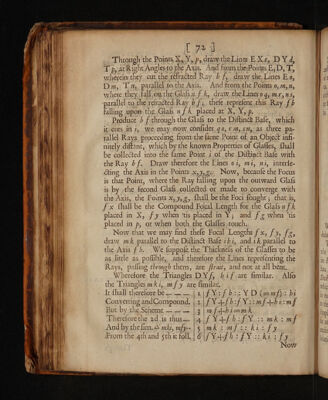 [ 72 ]
Through the Points X, Y, p, draw the Lines E X z, D Y d,
T p, at Right Angles to the Axis. And from the Points E, D, T,
whereby they cut the refracted Ray b f, draw the Lines E o,
D m, T n, parallel to the Axis. And from the Points o, m, n,
where they fall on the Glass n f h, draw the Lines
parallel to the refracted Ray b f; these represent this Ray f b
falling upon the Glass n f h placed at X, Y, p.
Produce b f through the Glass to the Distinct Base, which
it cuts in i, we may now consider as three pa-
rallel Rays proceeding from the same Point of an Object infi-
nitely distant, which by the known Properties of Glasses, shall
be collected into the same Point i of the Distinct Base with
the Ray b f. Draw therefore the Lines o i, m i, n i, interse-
cting the Axis in the Points x, y, g. Now, because the Focus
is that Point, where the Ray falling upon the outward Glass
is by the second Glass collected or made to converge with
the Axis, the Points x, y, g, shall be the Foci sought; that is,
f x shall be the Compound Focal Length for the Glass n f h
placed in X, f y when 'tis placed in Y; and f g when 'tis
placed in p, or when both the Glasses touch.
Now that we may find these Focal Lengths f x, f y, f g,
draw m k parallel to the Distinct Base i h i, and i k parallel to
the Axis f h. We suppose the Thickness of the Glasses to be
as little as possible, and therefore the Lines representing the
Rays, passing through them, are strait, and not at all bent.
Wherefore the Triangles D Y f, h i f are similar. Also
the Triangles m k i, m f y are similar.
It shall therefore be — — — | 1 | f Y : f h :: Y D (m f) : h i
Converting and Compound. | 2 | f Y + f h : f Y :: m f + h i : m f
But by the Scheme — — — | 3 | m f + h i = m k
Therefore the 2d is thus — | 4 | f Y + f h : f Y :: m k : m f
And by the sim. Δ mki, mfy — | 5 | m k : m f :: k i : f y
From the 4th and 5th it foll. | 6 | f Y + f h : f Y :: k i : f y
Now